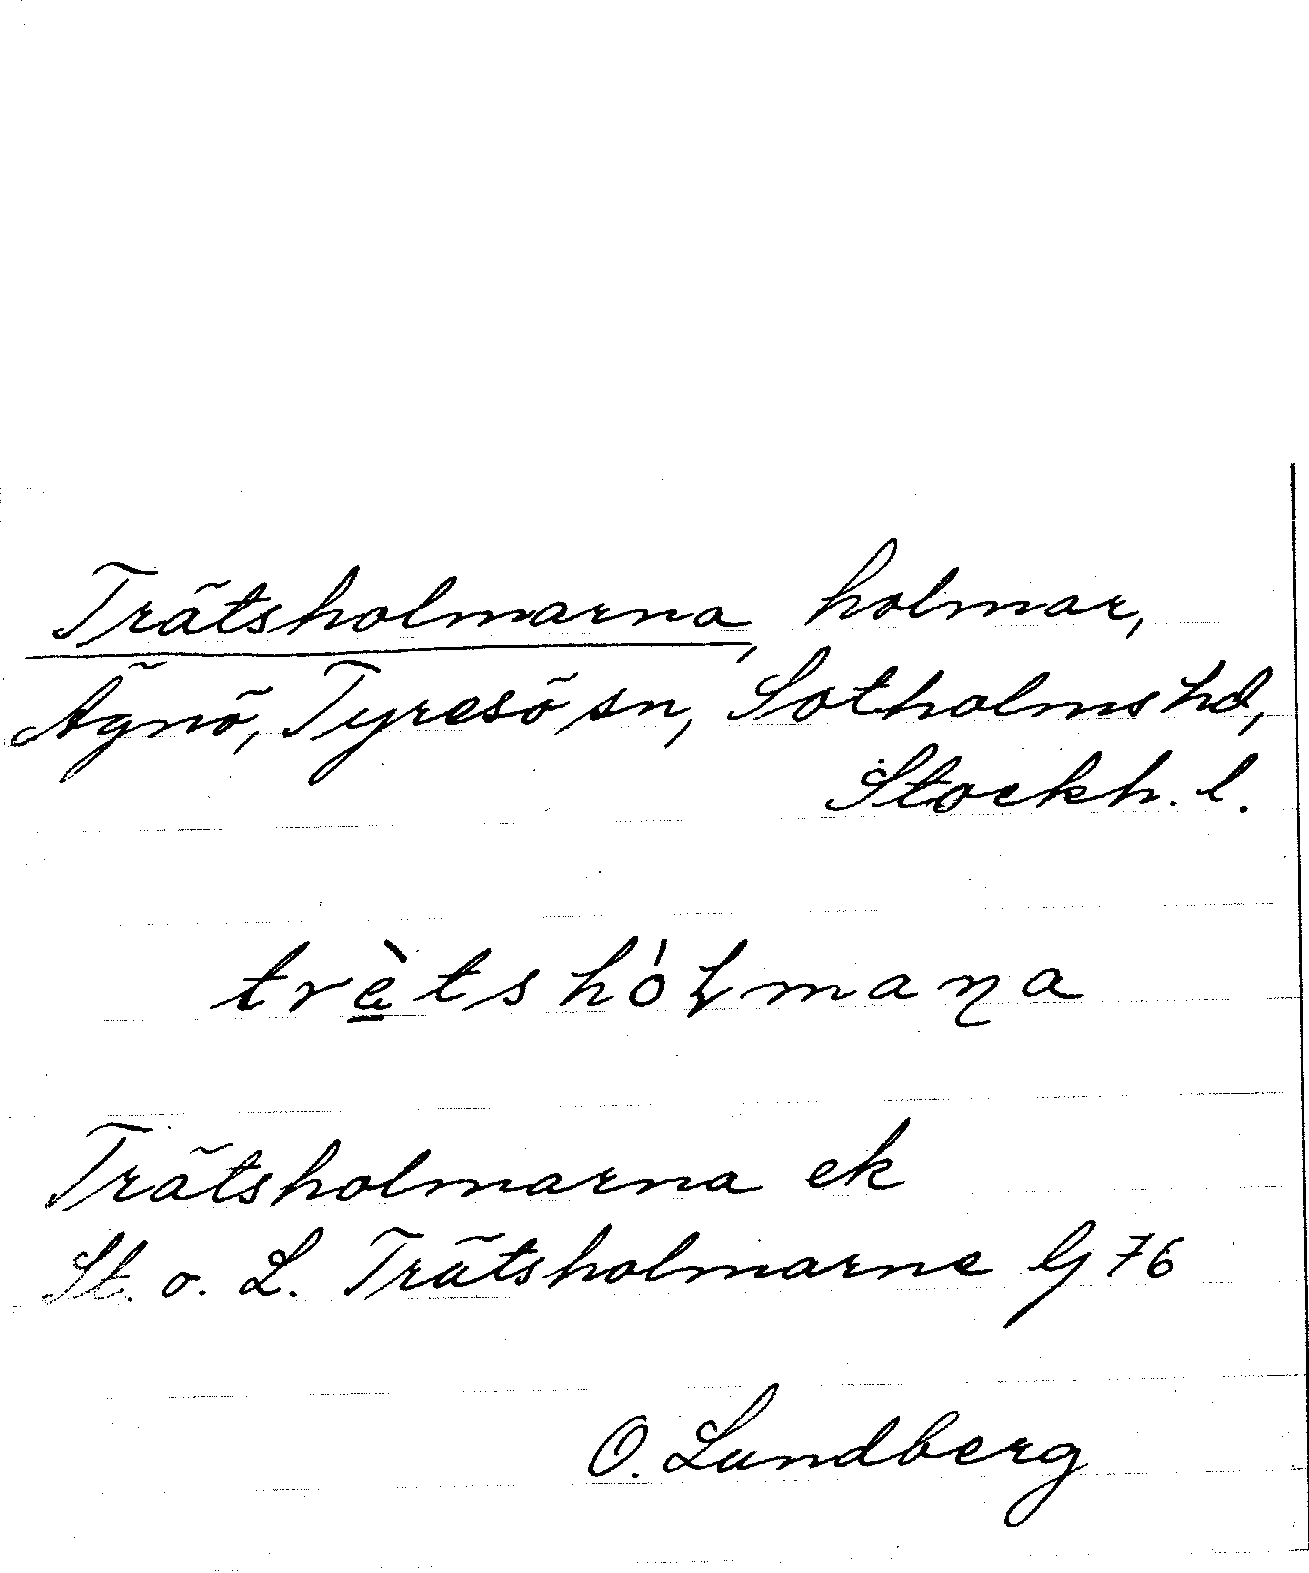 Trätsholmarna, holmar,
Ägnö, Tyresö sn, Sotholms hd,
Stockh. l.
trè̠tshólmaɳa
Trätsholmarna ek
St. o. L. Trätsholmarne Gj 76
O. Lundberg